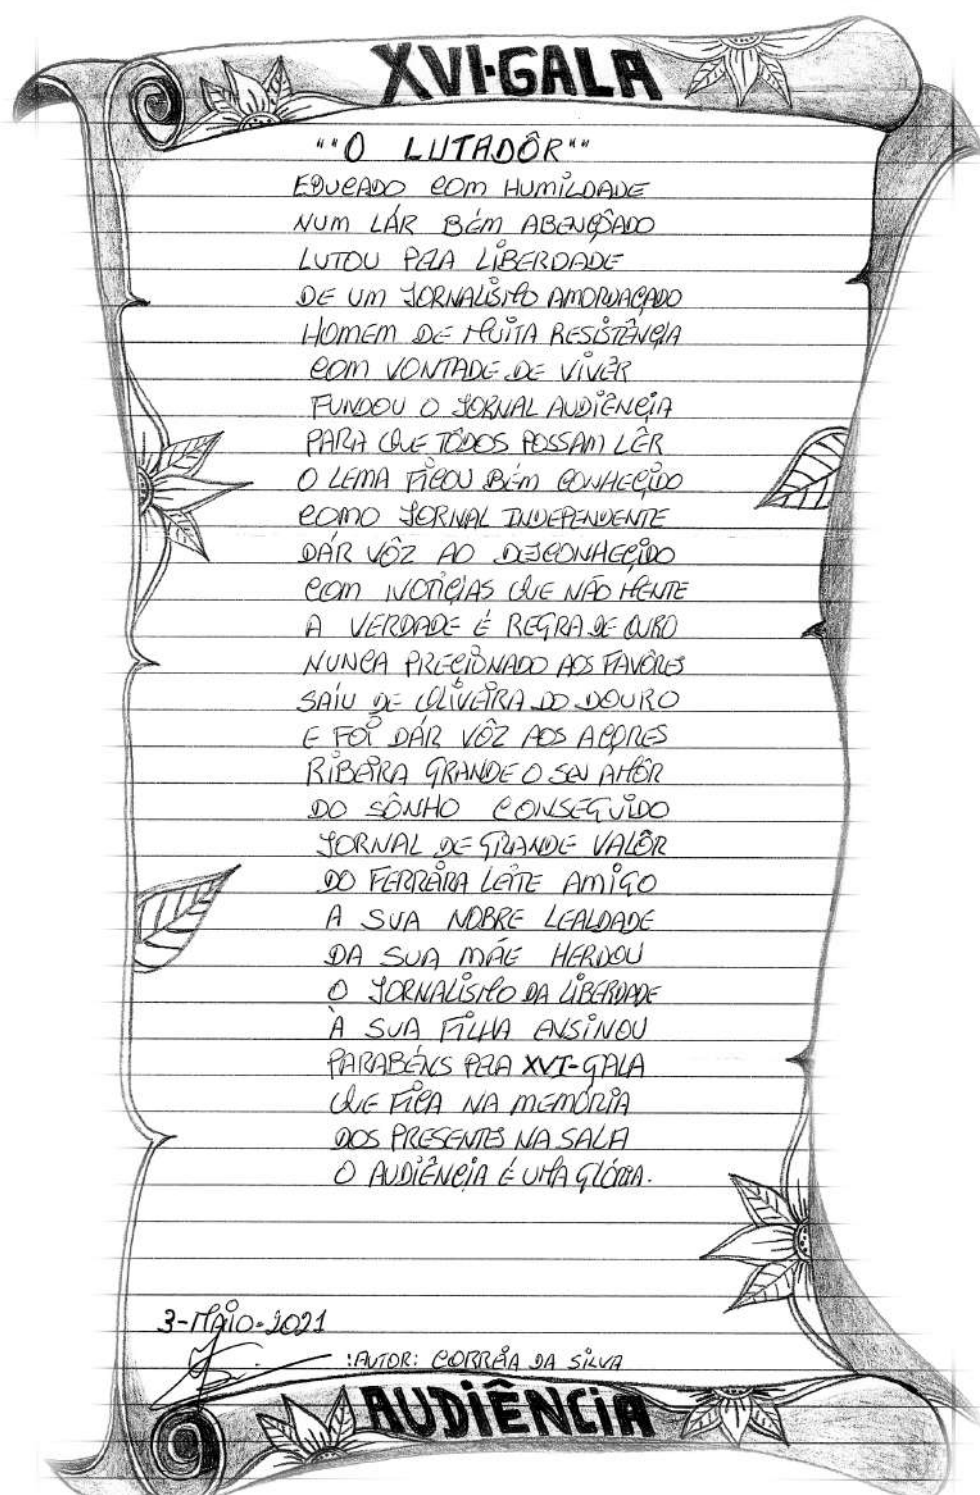 XVI-GALA
""O LUTADÔR""
EDUCADO COM HUMILDADE
NUM LÁR BÉM ABENÇÔADO
LUTOU PELA LIBERDADE
DE UM JORNALISMO AMORDAÇADO
HOMEM DE MUITA RESISTÊNÇIA
COM VONTADE DE VIVÊR
FUNDOU O JORNAL AUDIÊNCIA
PARA QUE TÔDOS POSSAM LÊR
O LEMA FICOU BÉM CONHEÇIDO
COMO JORNAL INDEPENDENTE
DÁR VÔZ AO DESCONHEÇIDO
COM NOTIÇIAS QUE NÃO MENTE
A VERDADE É REGRA DE OURO
NUNCA PREÇIONADO AOS FAVÔRES
SAÍU DE OLIVEIRA DO DOURO
E FOI DÁR VÔZ AOS AÇORES
RIBEIRA GRANDE O SEU AMÔR
DO SÔNHO CONSEGUIDO
JORNAL DE GRANDE VALÔR
DO FERREIRA LEITE AMIGO
A SUA NOBRE LEALDADE
DA SUA MÃE HERDOU
O JORNALISMO DA LIBERDADE
Á SUA FILHA ENSINOU
PARABÉNS PELA XVI-GALA
QUE FICA NA MEMÓRIA
DOS PRESENTES NA SALA
O AUDIÊNCIA É UMA GLÓRIA.
3-MAIO-2021
:AUTOR: CORREIA DA SILVA
AUDIÊNCIA